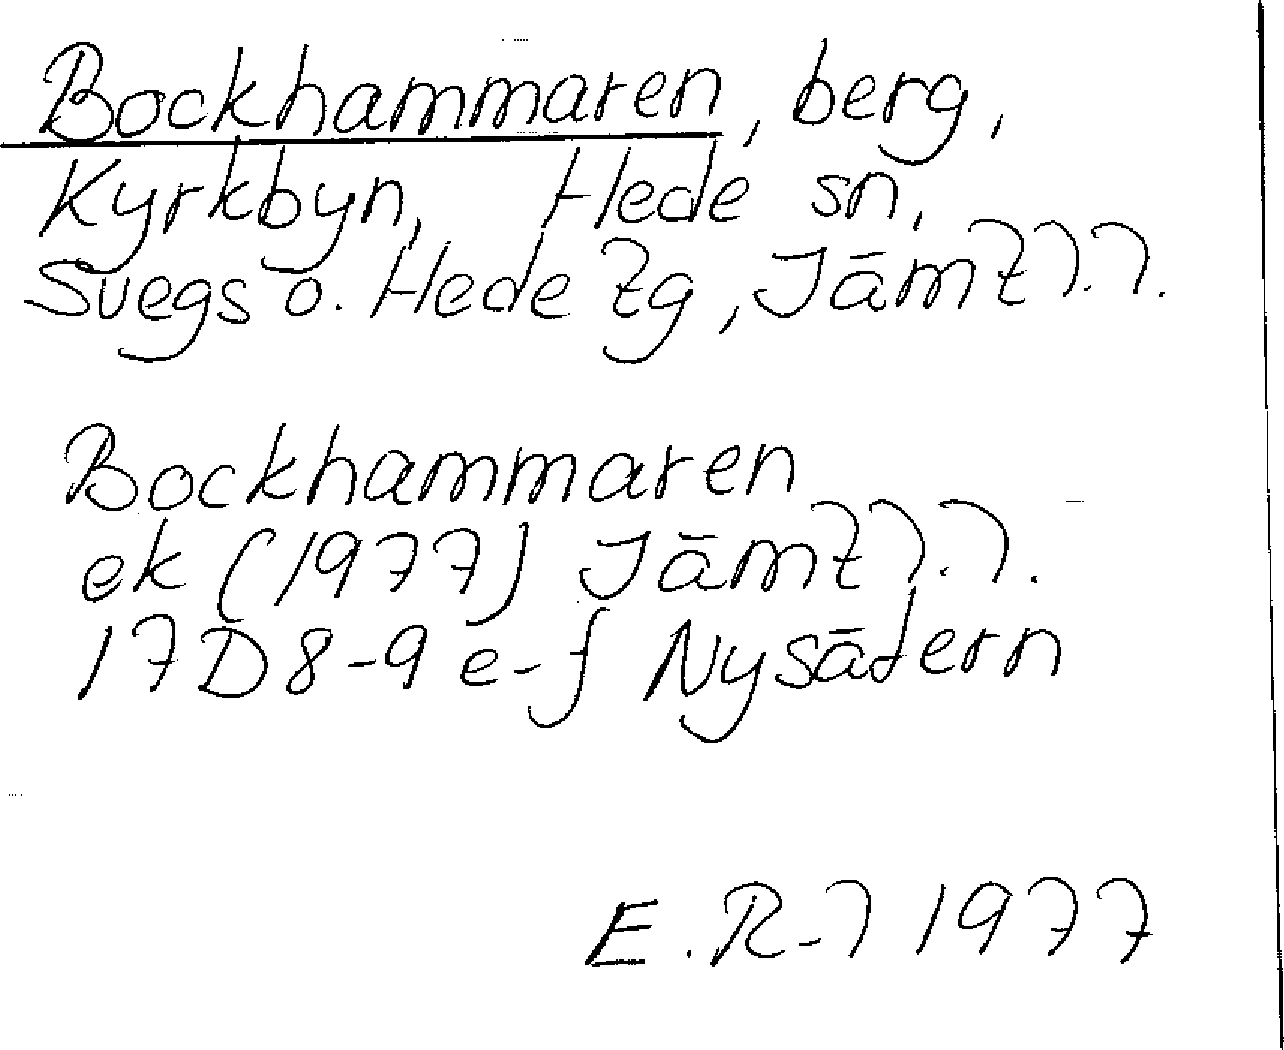 Bockhammaren, berg,
Kyrkbyn, Hede sn,
Svegs o. Hede tg, Jämtl.l.
Bockhammaren
ek (1977) Jämtl.l.
17D 8-9 e-f Nysätern
E.R-l 1977